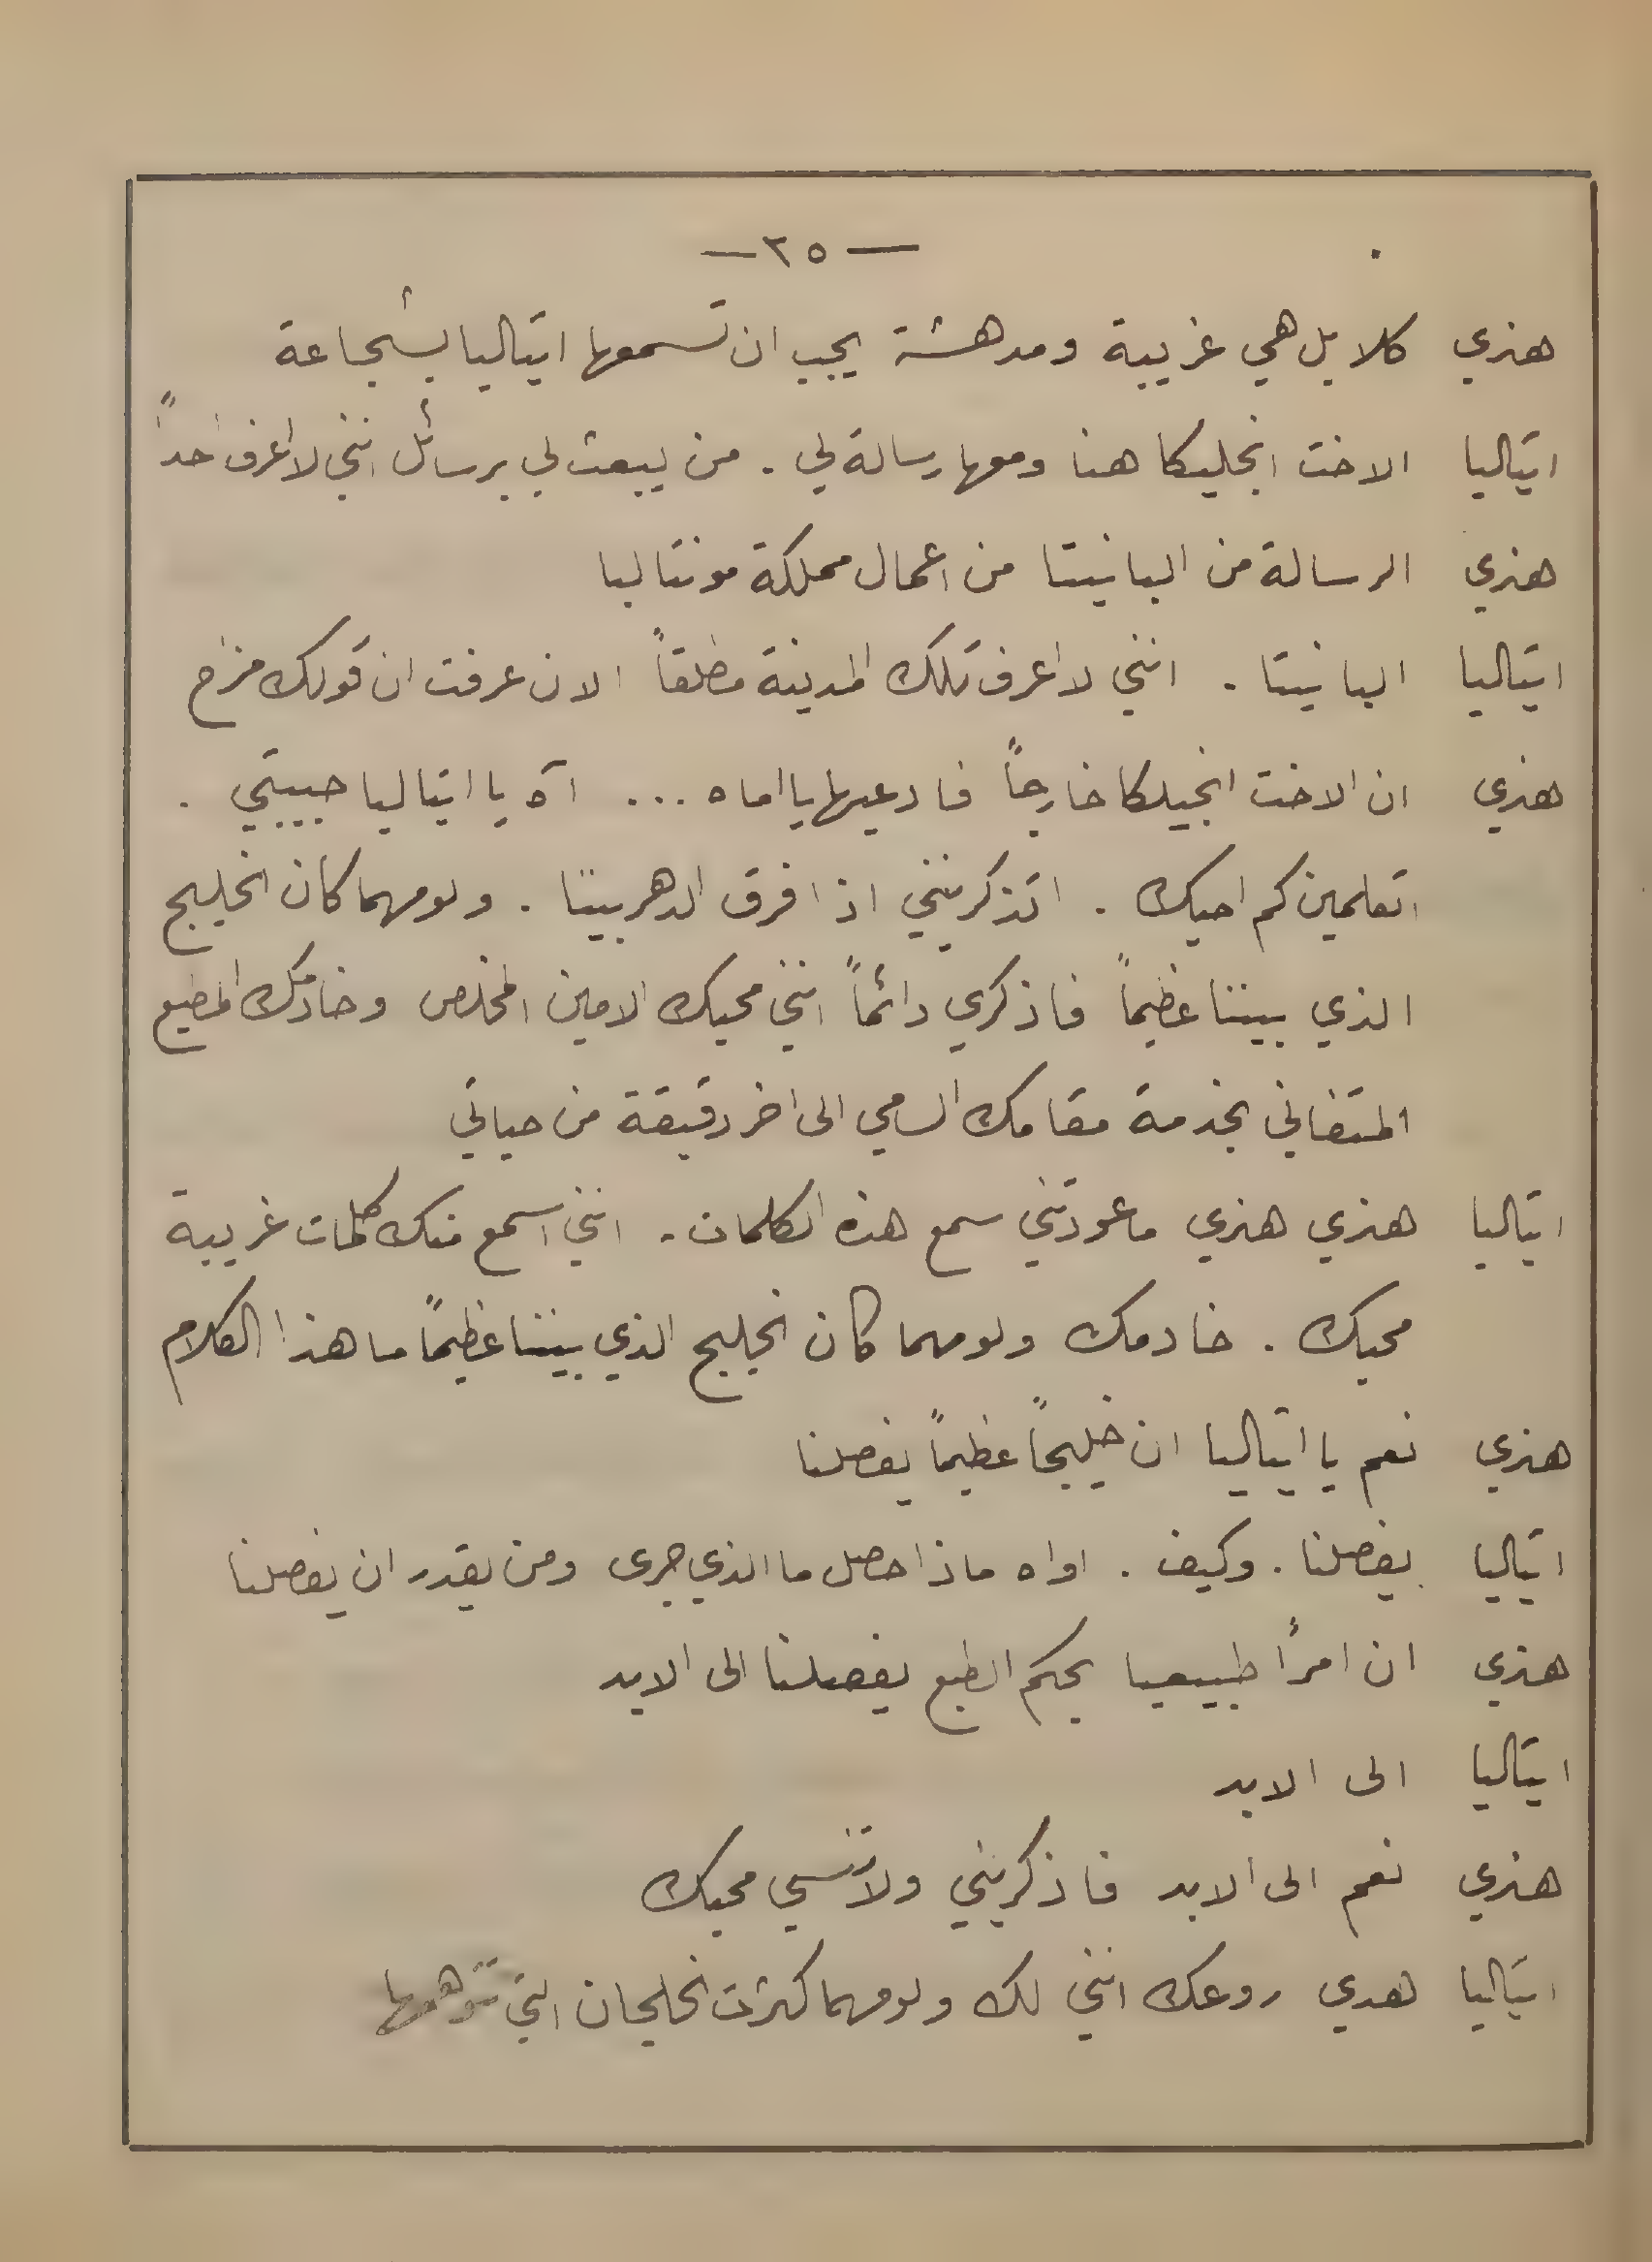 — ٣٥ —
هنري كلا بل هي غريبة ومدهشة يجب ان تسمعها ايتاليا بشجاعة
ايتاليا الاخت انجليكا هنا ومعها رسالة لي . من يبعث لي برسائل انني لا اعرف احداً
هنري الرسالة من البانيتا من اعمال مملكة مونتاليا
ايتاليا البانيتا . انني لا اعرف تلك المدينة مطلقاً الان عرفت ان قولك مزاح
هنري ان الاخت انجيلكا خارجاً فادعيها يا اماه ... آه يا ايتاليا حبيبتي .
اتعلمين كم احبك . اتذكرينني اذا فرق الدهر بيننا . ولو مهما كان الخليج
الذي بيننا عظيماً فاذكري دائماً انني محبك الامين المخلص وخادمك المطيع
المتفاني بخدمة مقامك السامي الى اخر دقيقة من حياتي
ايتاليا هنري هنري ما عودتني سمع هذه الكلمات . انني اسمع منك كلمات غريبة
محبك . خادمك ولو مهما كان الخليج الذي بيننا عظيماً ما هذا الكلام
هنري نعم يا ايتاليا ان خليجاً عظيماً يفصلنا
ايتاليا يفصلنا . وكيف . اواه ماذا حصل ما الذي جرى ومن يقدر ان يفصلنا
هنري ان امرأً طبيعيا بحكم الطبع يفصلنا الى الابد
ايتاليا الى الابد
هنري نعم الى الابد فاذكريني ولا تنسي محبك
ايتاليا هدي روعك انني لك ولو مهما كثرت الخلجان التي تتوهمها